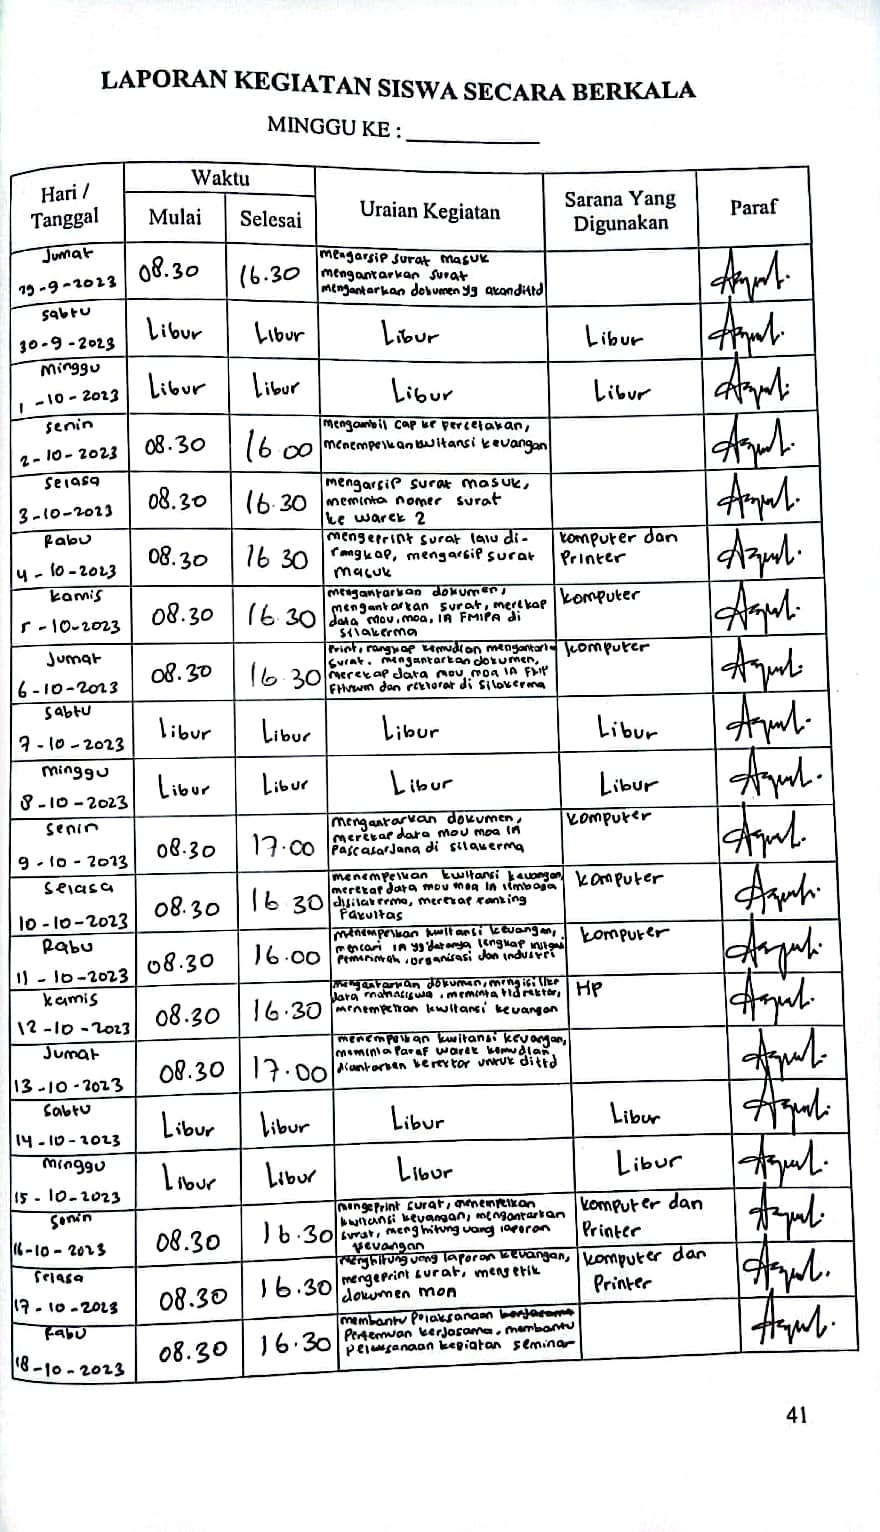 LAPORAN KEGIATAN SISWA SECARA BERKALA
MINGGU KE :
Hari / Tanggal Waktu Mulai Selesai Uraian Kegiatan Sarana Yang Digunakan Paraf
Jumat
29-9-2023 08.30 16.30
mengarsip surat masuk
mengantarkan surat
mengantarkan dokumen yg akan dittd
Sabtu
30-9-2023 Libur Libur Libur Libur
Minggu
1-10-2023 Libur Libur Libur Libur
Senin
2-10-2023 08.30 16 00
mengambil cap ke percetakan,
menempelkan kwitansi keuangan
Selasa
3-10-2023 08.30 16.30
mengarsip surat masuk,
meminta nomer surat
ke warek 2
Rabu
4-10-2023 08.30 16 30
mengeprint surat lalu di-
rangkap, mengarsip surat
masuk
komputer dan
Printer
Kamis
5-10-2023 08.30 16.30
mengantarkan dokumen,
mengantarkan surat, merekap
data mou, moa, IA FMIPA di
silakerma
komputer
Jumat
6-10-2023 08.30 16.30
Print, rangkap kemudian
surat. mengantarkan dokumen,
merekap data mou moa IA FKIP
dan rektorat di silakerma
komputer
Sabtu
7-10-2023 Libur Libur Libur Libur
Minggu
8-10-2023 Libur Libur Libur Libur
Senin
9-10-2023 08.30 17.00
mengantarkan dokumen,
merekap data mou moa IA
Pascasarjana di silakerma
komputer
Selasa
10-10-2023 08.30 16 30
menempelkan kwitansi keuangan,
merekap data mou moa IA
disilakerma, merekap ranking
Fakultas
komputer
Rabu
11-10-2023 08.30 16.00
menempelkan kwitansi keuangan,
mencari IA yg datanya lengkap
Pemerintah, organisasi dan industri
komputer
Kamis
12-10-2023 08.30 16.30
mengantarkan dokumen, mengisi
data mahasiswa, meminta ttd rektor,
menempelkan kwitansi keuangan
HP
Jumat
13-10-2023 08.30 17.00
menempelkan kwitansi keuangan,
meminta Paraf warek kemudian
diantarkan ke rektor untuk dittd
Sabtu
14-10-2023 Libur Libur Libur Libur
Minggu
15-10-2023 Libur Libur Libur Libur
Senin
16-10-2023 08.30 16.30
mengeprint surat, menempelkan
kwitansi keuangan, mengantarkan
surat, menghitung uang laporan
keuangan
komputer dan
Printer
Selasa
17-10-2023 08.30 16.30
menghitung uang laporan keuangan,
mengeprint surat, mengetik
dokumen mon
komputer dan
Printer
Rabu
18-10-2023 08.30 16.30
membantu Pelaksanaan
Pertemuan kerjasama, membantu
pelaksanaan kegiatan seminar
41